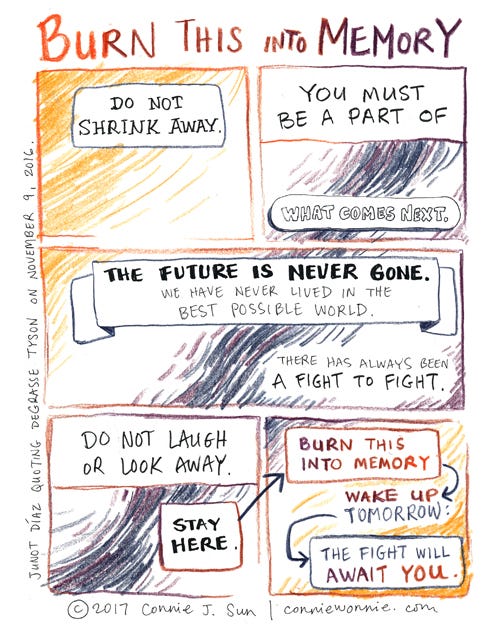 BURN THIS INTO MEMORY
DO NOT
SHRINK AWAY.
YOU MUST
BE A PART OF
WHAT COMES NEXT.
THE FUTURE IS NEVER GONE.
WE HAVE NEVER LIVED IN THE
BEST POSSIBLE WORLD.
THERE HAS ALWAYS BEEN
A FIGHT TO FIGHT.
DO NOT LAUGH
OR LOOK AWAY.
STAY
HERE.
BURN THIS
INTO MEMORY
WAKE UP
TOMORROW:
THE FIGHT WILL
AWAIT YOU.
JUNOT DÍAZ QUOTING DEGRASSE TYSON ON NOVEMBER 9, 2016.
© 2017 Connie J. Sun | conniewonnie.com